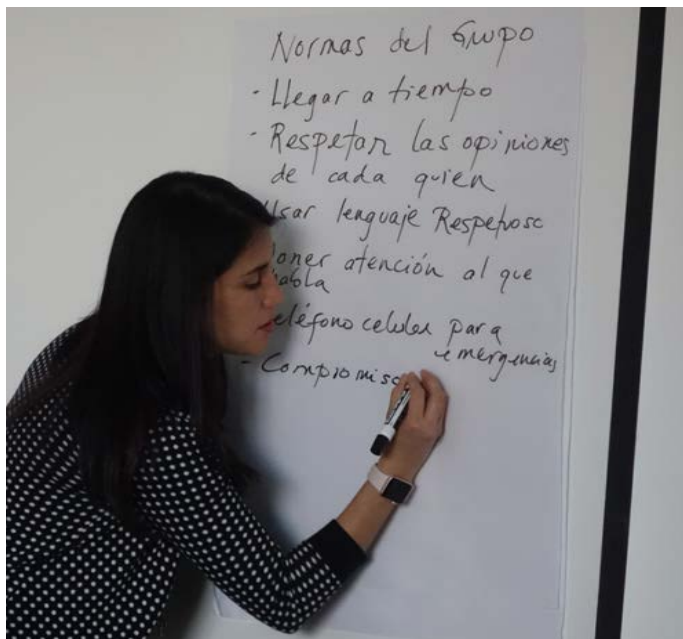 Normas del Grupo
- Llegar a tiempo
- Respetar las opiniones
de cada quien
Usar lenguaje Respetuoso
poner atención al que
habla
teléfono celular para
emergencias
- Compromiso